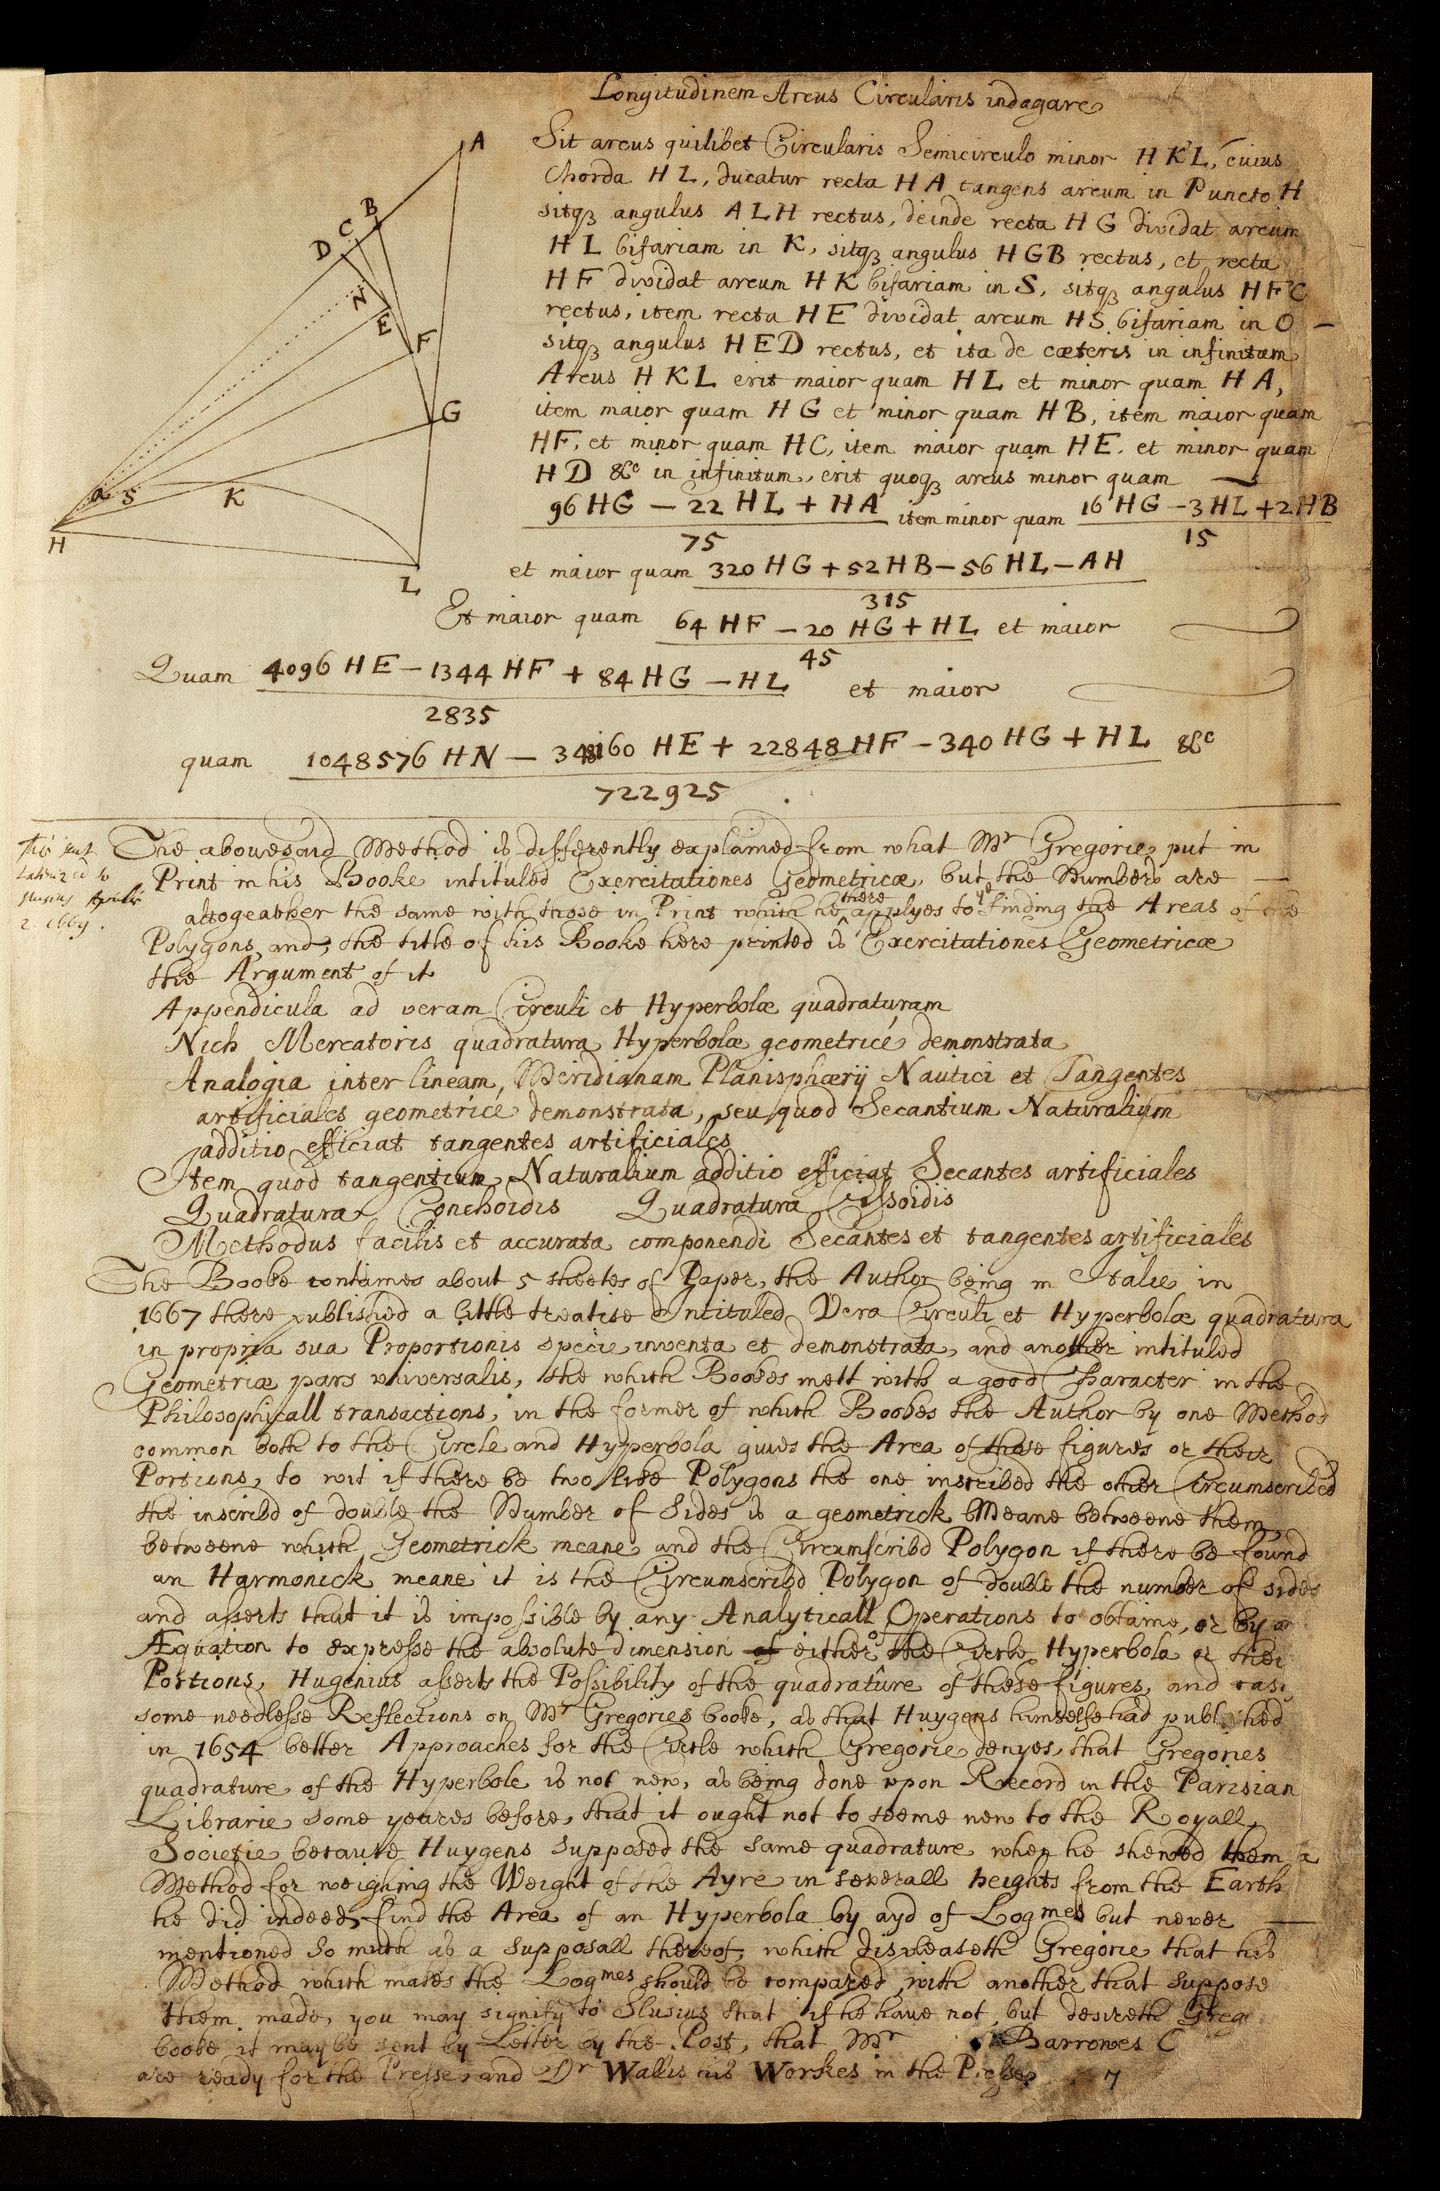 Longitudinem Arcus Circularis indagare
A
B
C
D
N
E
F
G
O
S
K
H
L
Sit arcus quilibet Circularis Semicirculo minor HKL, cuius
Chorda HL, ducatur recta HA tangens arcum in Puncto H
sitqȝ angulus ALH rectus, deinde recta HG dividat arcum
HL bifariam in K, sitqȝ angulus HGB rectus, et recta
HF dividat arcum HK bifariam in S, sitqȝ angulus HFC
rectus, item recta HE dividat arcum HS bifariam in O —
sitqȝ angulus HED rectus, et ita de cæteris in infinitum
Arcus HKL erit maior quam HL et minor quam HA,
item maior quam HG et minor quam HB, item maior quam
HF, et minor quam HC, item maior quam HE. et minor quam
HD &c in infinitum, erit quoqȝ arcus minor quam
96 HG — 22 HL + HA item minor quam 16 HG — 3 HL + 2 HB
75 15
et maior quam 320 HG + 52 HB — 56 HL — AH
315
Et maior quam 64 HF — 20 HG + HL et maior
45
Quam 4096 HE — 1344 HF + 84 HG — HL et maior
2835
quam 1048576 HN — 348160 HE + 22848 HF — 340 HG + HL &c
722925
This sent
Latinized to
Slusius Aprill
2. 1669.
The abovesaid Method is differently explained from what Mr Gregorie put in
Print in his Booke intituled Exercitationes Geometricæ, but the Numbers are —
altogeather the same with those in Print which he there applyes to ye finding the Areas of the
Polygons, and, the title of his Booke here printed is Exercitationes Geometricæ
the Argument of it
Appendicula ad veram Circuli et Hyperbolæ quadraturam
Nich Mercatoris quadratura Hyperbolæ geometricé demonstrata
Analogia inter lineam, Meridianam Planisphærij Nautici et Tangentes
artificiales geometricé demonstrata, seu quod Secantium Naturalium
additio efficiat tangentes artificiales
Item quod tangentium Naturalium additio efficiat Secantes artificiales
Quadratura Conchoidis Quadratura Cissoidis
Methodus facilis et accurata componendi Secantes et tangentes artificiales
The Booke containes about 5 sheetes of Paper, the Author being in Italie in
1667 there published a little treatise Intituled Vera Circuli et Hyperbolæ quadratura
in propria sua Proportionis specie inventa et demonstrata, and another intituled
Geometriæ pars vniversalis, the which Bookes mett with a good Character in the
Philosophicall transactions, in the former of which Bookes the Author by one Method
common both to the Circle and Hyperbola giues the Area of those figures or their
Portions, to wit if there be two like Polygons the one inscribed the other Circumscribed
the inscribd of double the Number of Sides is a geometrick Meane betweene them
betweene which Geometrick meane and the Circumscribd Polygon if there be found
an Harmonick meane it is the Circumscribd Polygon of double the number of sides
and asserts that it is impossible by any Analyticall Operations to obtaine, or by a
Æquation to expresse the absolute dimension of either of the Circle Hyperbola or their
Portions, Hugenius asserts the Possibility of the quadrature of these figures, and cast
some needlesse Reflections on Mr Gregories booke, as that Huygens himselfe had published
in 1654 better Approaches for the Circle which Gregorie denyes, that Gregories
quadrature of the Hyperbole is not new, as being done vpon Record in the Parisian
Librarie some yeares before, that it ought not to seeme new to the Royall
Societie because Huygens supposed the same quadrature when he shewed them a
Method for weighing the Weight of the Ayre in severall heights from the Earth
he did indeed find the Area of an Hyperbola by ayd of Logmes but never —
mentioned so much as a supposall thereof, which displeaseth Gregorie that his
Method which makes the Logmes should be compared with another that suppose
them made, you may signify to Slusius that if he have not, but desireth Greg
booke it may be sent by Letter by the Post, that Mr Barrowes
are ready for the Presse, and Dr Wallis his Workes in the Presse